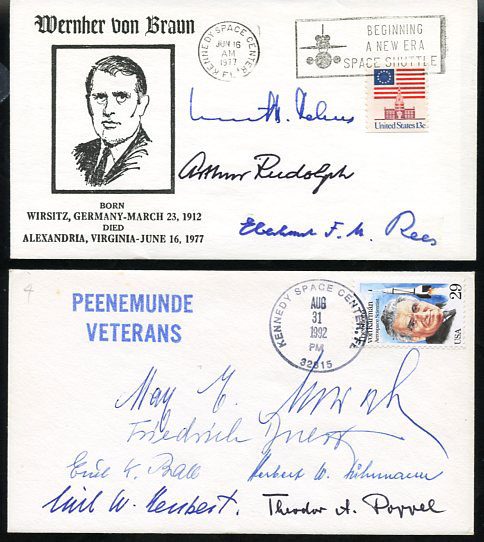 Wernher von Braun
KENNEDY SPACE CENTER, FL.
JUN 16
AM
1977
BEGINNING
A NEW ERA
SPACE SHUTTLE
United States 13c
Arthur Rudolph
Eberhard F. M. Rees
BORN
WIRSITZ, GERMANY-MARCH 23, 1912
DIED
ALEXANDRIA, VIRGINIA-JUNE 16, 1977
4
PEENEMUNDE
VETERANS
KENNEDY SPACE CENTER, FL
AUG
31
1992
PM
32815
Theodore
von Kármán
Aerospace Scientist
29
USA
May E.
Friedrich
Emil K.
Herbert W.
Emil W.
Theodor A. Poppel